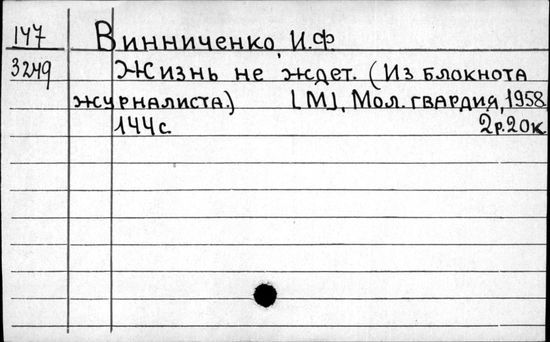 147 Винниченко, И.Ф
3249 Жизнь не ждет. (Из блокнота
журналиста.) [М], Мол. гвардия, 1958
144с. 2р.20к